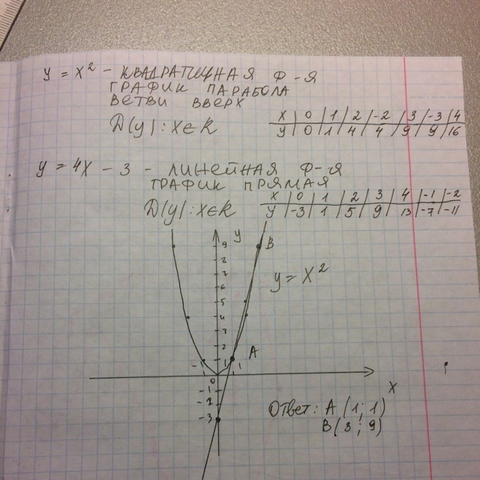 y = x² - КВАДРАТИЧНАЯ Ф-Я
ГРАФИК ПАРАБОЛА
ВЕТВИ ВВЕРХ
D(y): x∈R
x | 0 | 1 | 2 | -2 | 3 | -3 | 4
y | 0 | 1 | 4 | 4 | 9 | 9 | 16
y = 4x - 3 - ЛИНЕЙНАЯ Ф-Я
ГРАФИК ПРЯМАЯ
D(y): x∈R
x | 0 | 1 | 2 | 3 | 4 | -1 | -2
y | -3 | 1 | 5 | 9 | 13 | -7 | -11
y
9 B
8
7
y = x²
6
5
4
3
2
A
-1 1 1
0
x
-1
-2
-3
Ответ: A (1; 1)
B(3; 9)